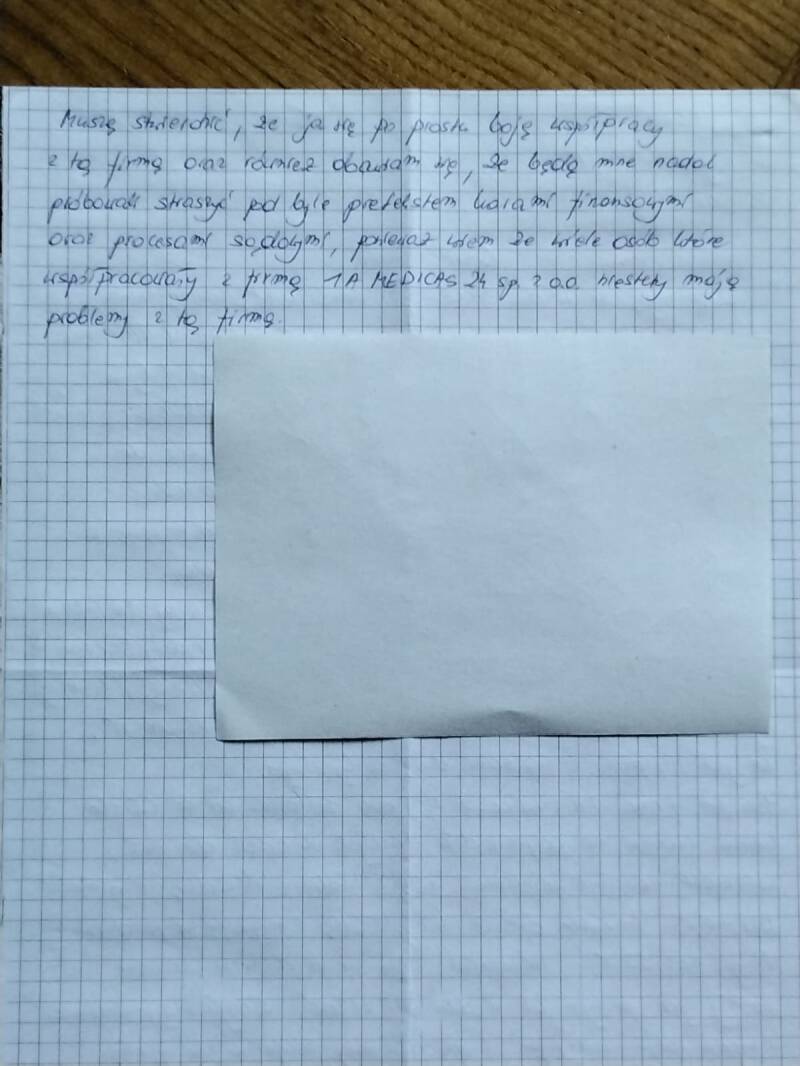 Muszę stwierdzić, że ja się po prostu boję współpracy
z tą firmą oraz również obawiam się, że będą mnie nadal
próbowali straszyć pod byle pretekstem karami finansowymi
oraz procesami sądowymi, ponieważ wiem że wiele osób które
współpracowały z firmą 1A MEDICAS 24 sp. z o.o. niestety mają
problemy z tą firmą.